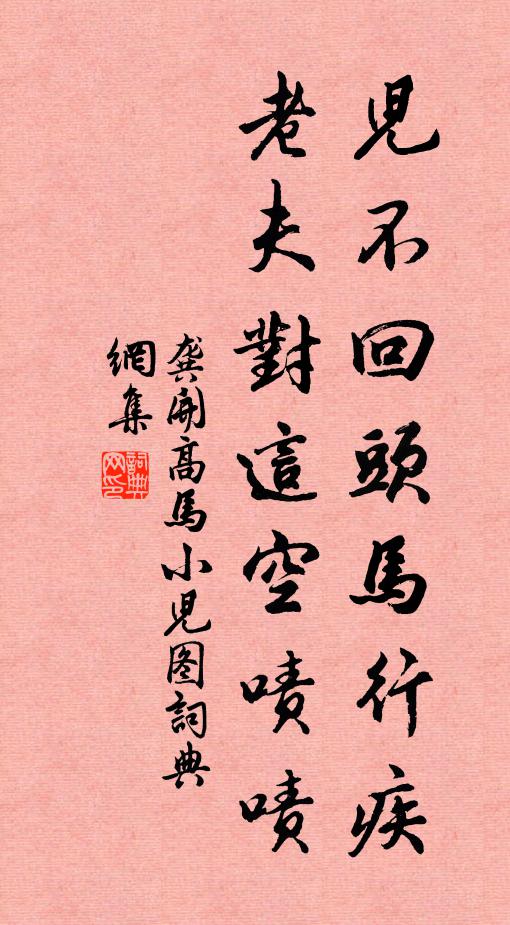 兒不回頭馬行疾
老夫對這空嘖嘖
龔開高馬小兒图詞典
網集
詞典
网印